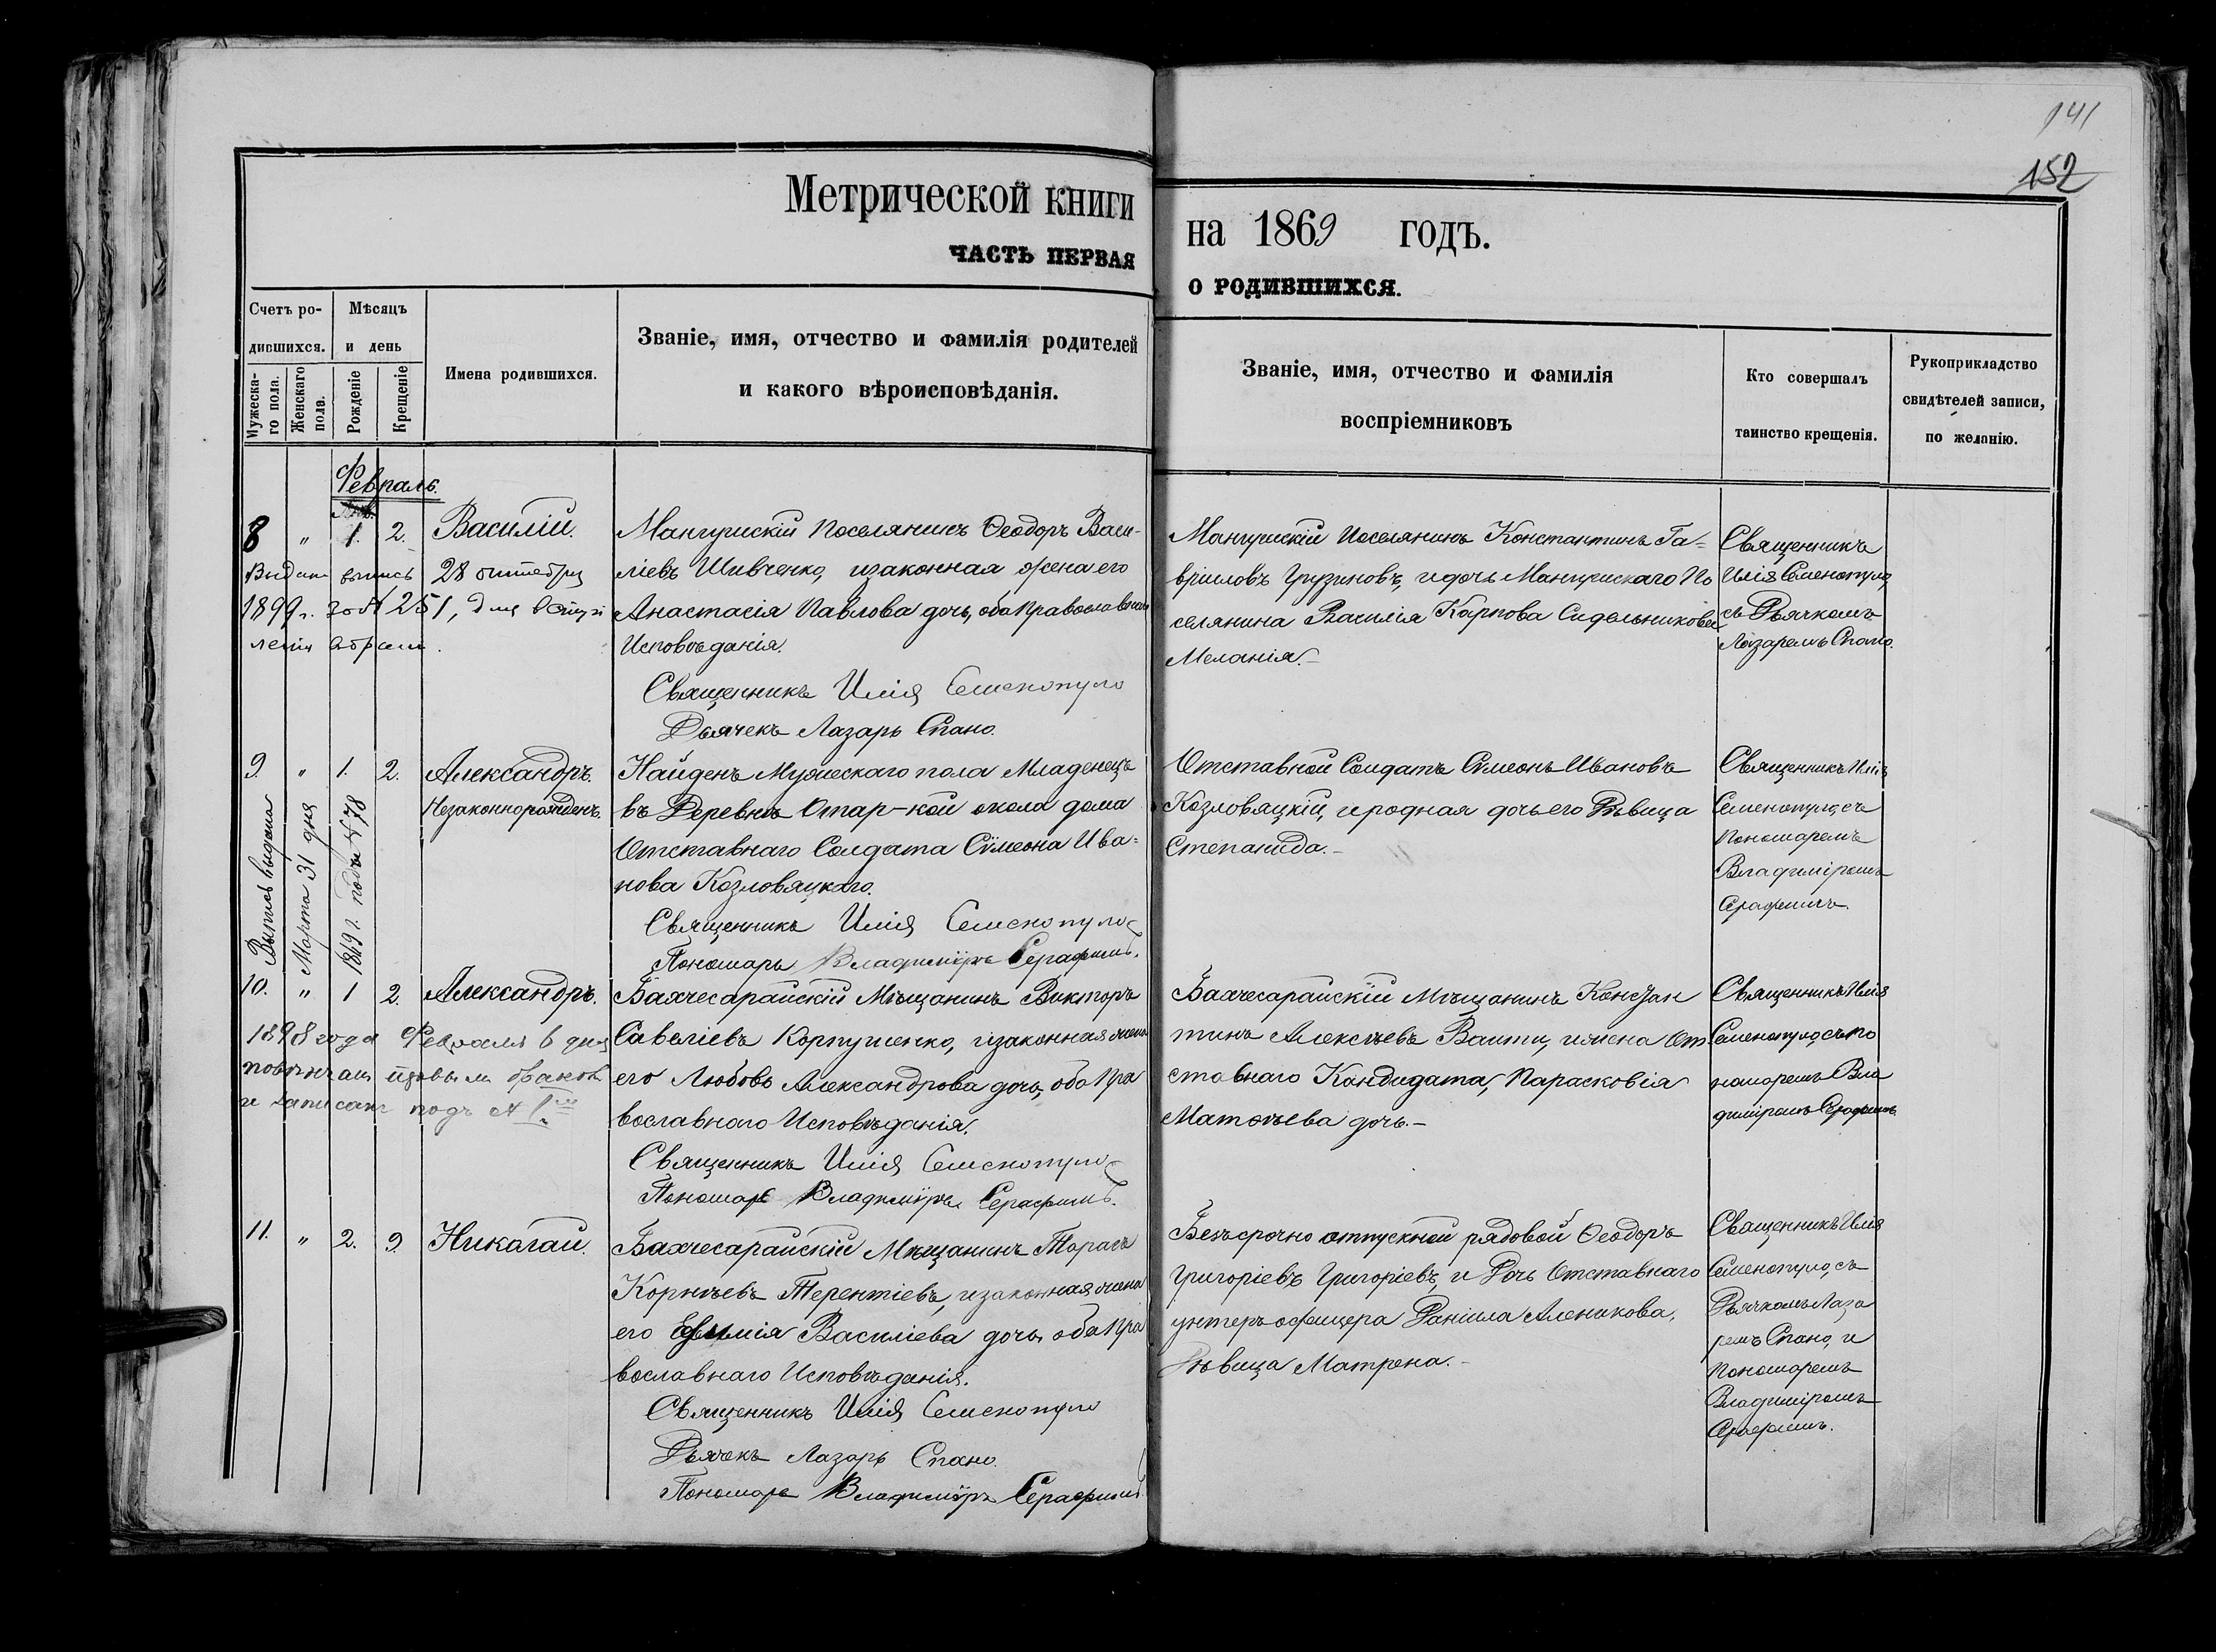 141
152
Метрической книги
на 1869 годъ.
ЧАСТЬ ПЕРВАЯ
О РОДИВШИХСЯ.
Счетъ ро-
дившихся.
Мѣсяцъ
и день
Мужеска-
го пола.
Женскаго
пола.
Рожденіе
Крещеніе
Имена родившихся.
Званіе, имя, отчество и фамилія родителей
и какого вѣроисповѣданія.
Званіе, имя, отчество и фамилія
воспріемниковъ
Кто совершалъ
таинство крещенія.
Рукоприкладство
свидѣтелей записи,
по желанію.
Февраль.
8 " 1. 2. Василій.
28 октября
1899 г. за № 251, для
Мангушскій Поселянинъ Ѳеодоръ Васи-
ліевъ Шивченко, и законная жена его
Анастасія Павлова дочь, оба Православнаго
Исповѣданія.
Священникъ Илія Семенопуло
Дьячекъ Лазарь Спано.
Мангушскій Поселянинъ Константинъ Га-
вріиловъ Грузиновъ, и дочь Мангушскаго По
селянина Василія Карпова Сидельникова
Меланія.-
Священникъ
Илія Семенопуло,
съ Дьячкомъ
Лазаремъ Спано.
9. " 1. 2. Александръ.
Незаконнорожденъ.
Выпись выдана
Марта 31 дня
1869 г. подъ № 78
Найденъ Мужескаго пола Младенецъ
въ Деревнѣ Отар-кой около дома
Отставнаго Солдата Сѵмеона Ива=
нова Козловяцкаго.
Священникъ Илія Семенопуло
Пономарь Владиміръ Серафимъ.
Отставной Солдатъ Сѵмеонъ Ивановъ
Козловяцкій, и родная дочь его Дѣвица
Степанида.-
Священникъ Илія
Семенопуло, съ
Пономаремъ
Владиміромъ
Серафимъ.
10. " 1 2. Александръ.
1898 года Февраля 6 дня
повѣнчанъ первымъ бракомъ
и записанъ подъ № 1
Бахчесарайскій Мѣщанинъ Викторъ
Савеліевъ Корпушенко, и законная жена
его Любовь Александрова дочь, оба Пра
вославнаго Исповѣданія.
Священникъ Илія Семенопуло
Пономарь Владиміръ Серафимъ.
Бахчесарайскій Мѣщанинъ Констан
тинъ Алексѣевъ и жена От
ставнаго Кандидата, Парасковія
Матѳѣева дочь.-
Священникъ Илія
Семенопуло, съ По
номаремъ Вла
диміромъ Серафимъ
11. " 2. 9. Николай.
Бахчесарайскій Мѣщанинъ Тарасъ
Корнѣевъ Терентіевъ, и законная жена
его Василіева дочь, оба Пра
вославнаго Исповѣданія.
Священникъ Илія Семенопуло
Дьячекъ Лазарь Спано.
Пономарь Владиміръ Серафимъ
Безъсрочно отпускной рядовой Ѳеодоръ
Григоріевъ Григоріевъ, и Дочь Отставнаго
унтеръ-офицера Даніила Аленикова,
Дѣвица Матрена.-
Священникъ Илія
Семенопуло, съ
Дьячкомъ Лаза
ремъ Спано, и
Пономаремъ
Владиміромъ
Серафимъ.